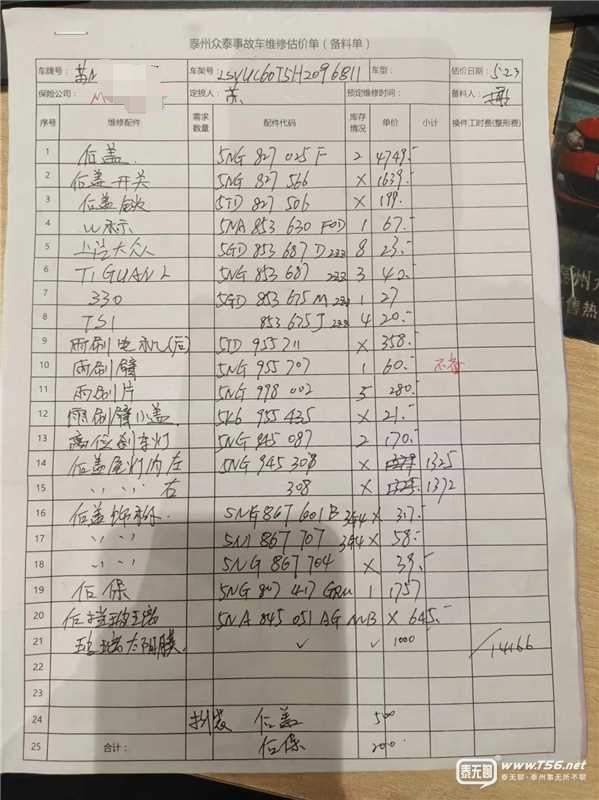 泰州众泰事故车维修估价单（备料单）
车牌号： 苏 车架号 LSVUC60T5H2096811 车型： 估价日期：5.23
保险公司： 定损人： 预定维修时间： 备料人：
序号 维修配件 需求数量 配件代码 库存情况 单价 小计 换件工时费(整形费)
1 后盖 5NG 827 025 F 2 4749.-
2 后盖开关 5NG 827 566 × 1639.-
3 后盖锁 5TD 827 506 × 199.-
4 W标 5NA 853 630 FOD 1 67.-
5 上汽大众 5GD 853 687 D 2ZZ 8 23.-
6 TIGUAN L 5NG 853 687 2ZZ 3 40.-
7 330 5GD 853 675 M 2ZZ 1 27
8 TSI 853 675 J 2ZZ 4 20.-
9 雨刷电机(后) 5TD 955 711 × 358.-
10 雨刷臂 5NG 955 707 1 60.-
11 雨刷片 5NG 998 002 5 280.-
12 雨刷臂小盖 5K6 955 435 × 21.-
13 高位刹车灯 5NG 945 087 2 170.-
14 后盖尾灯内左 5NG 945 308 × 1325
15 〃 〃 右 308 × 1372
16 后盖饰板 5NG 867 601 B 3G4 × 317.-
17 〃 〃 867 707 3G4 × 58.-
18 〃 〃 5NG 867 704 × 39.-
19 后保 5NG 807 417 GRU 1 1757
20 后挡玻璃 5NA 845 051 AG MB × 645.-
21 玻璃太阳膜 ✓ ✓ 1000 /14166
22
23
24 拆装 后盖 500
25 合计： 后保 200
泰无聊 www.T56.net
泰无聊·泰州事无所不聊